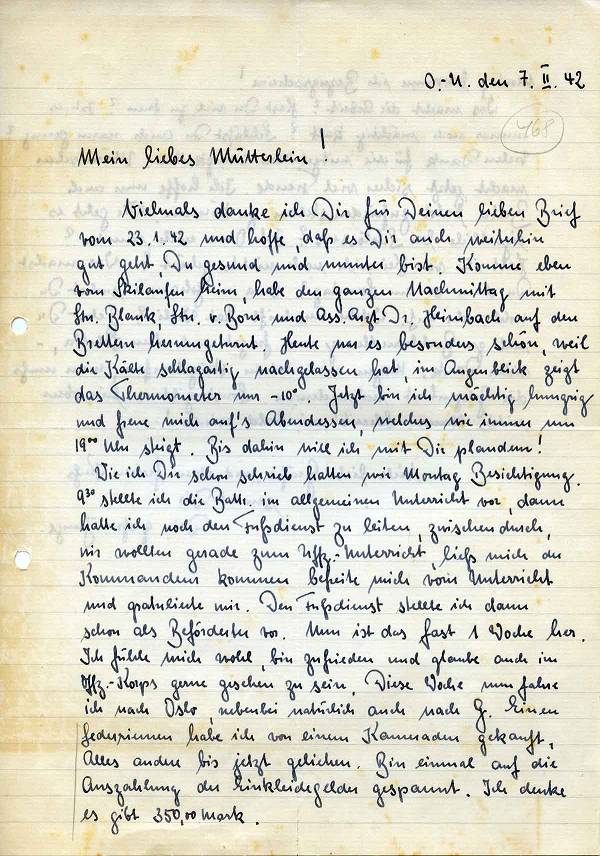 O.-U. den 7. II. 42
468
Mein liebes Mütterlein!
Vielmals danke ich Dir für Deinen lieben Brief
vom 23.1.42 und hoffe, daß es Dir auch weiterhin
gut geht, Du gesund und munter bist. Komme eben
vom Skilaufen heim, habe den ganzen Nachmittag mit
Ltn. Blank, Ltn. v. Born und Ass. Arzt Dr. Heimbach auf den
Brettern herumgeturnt. Heute war es besonders schön, weil
die Kälte schlagartig nachgelassen hat, im Augenblick zeigt
das Thermometer nur -10°. Jetzt bin ich mächtig hungrig
und freue mich auf's Abendessen, welches wie immer um
19⁰⁰ Uhr steigt. Bis dahin will ich mit Dir plaudern!
Wie ich Dir schon schrieb hatten wir Montag Besichtigung.
9³⁰ stellte ich die Battr. im allgemeinen Unterricht vor, dann
hatte ich noch den Fußdienst zu leiten, zwischendurch,
wir wollten gerade zum Uffz.-Unterricht, ließ mich der
Kommandeur kommen befreite mich vom Unterricht
und gratulierte mir. Den Fußdienst stellte ich dann
schon als Beförderter vor. Nun ist das fast 1 Woche her.
Ich fühle mich wohl, bin zufrieden und glaube auch im
Offz.-Korps gerne gesehen zu sein. Diese Woche nun fahre
ich nach Oslo, nebenbei natürlich auch nach G. Einen
Federriemen habe ich von einem Kameraden gekauft,
alles andere bis jetzt geliehen. Bin einmal auf die
Auszahlung der Einkleidegelder gespannt. Ich denke
es gibt 350,00 Mark.